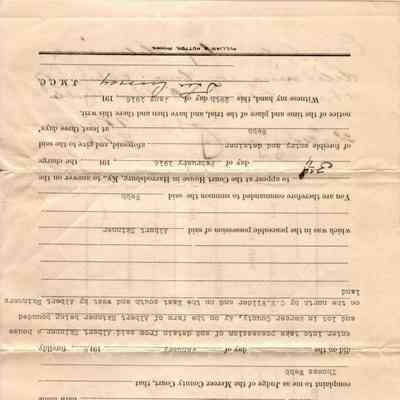 complaint to me as Judge of the Mercer County Court, that,
Thomas Webb
did on the day of January 191 forcibly
enter into take possession of and detain from said Albert Skinner a house
and lot in Mercer County, Ky on the farm of Albert Skinner being bounded
on the north by C.S.Wilder and on the East south and west by Albert Skinners
land
was in the peaceable possession of said Albert Skinner
You are therefore commanded to summon the said Webb
to appear at the Court House in Harrodsburg, Ky., to answer on the
day of February 1916 , 191 the charge
forcible entry and detainer aforesaid, and give to the said
Webb at least three days'
notice of the time and place of the trial, and have then and there this writ.
Witness my hand, this 29th day of Jany 1916 , 191
J.M.C.C.
HUTTON,